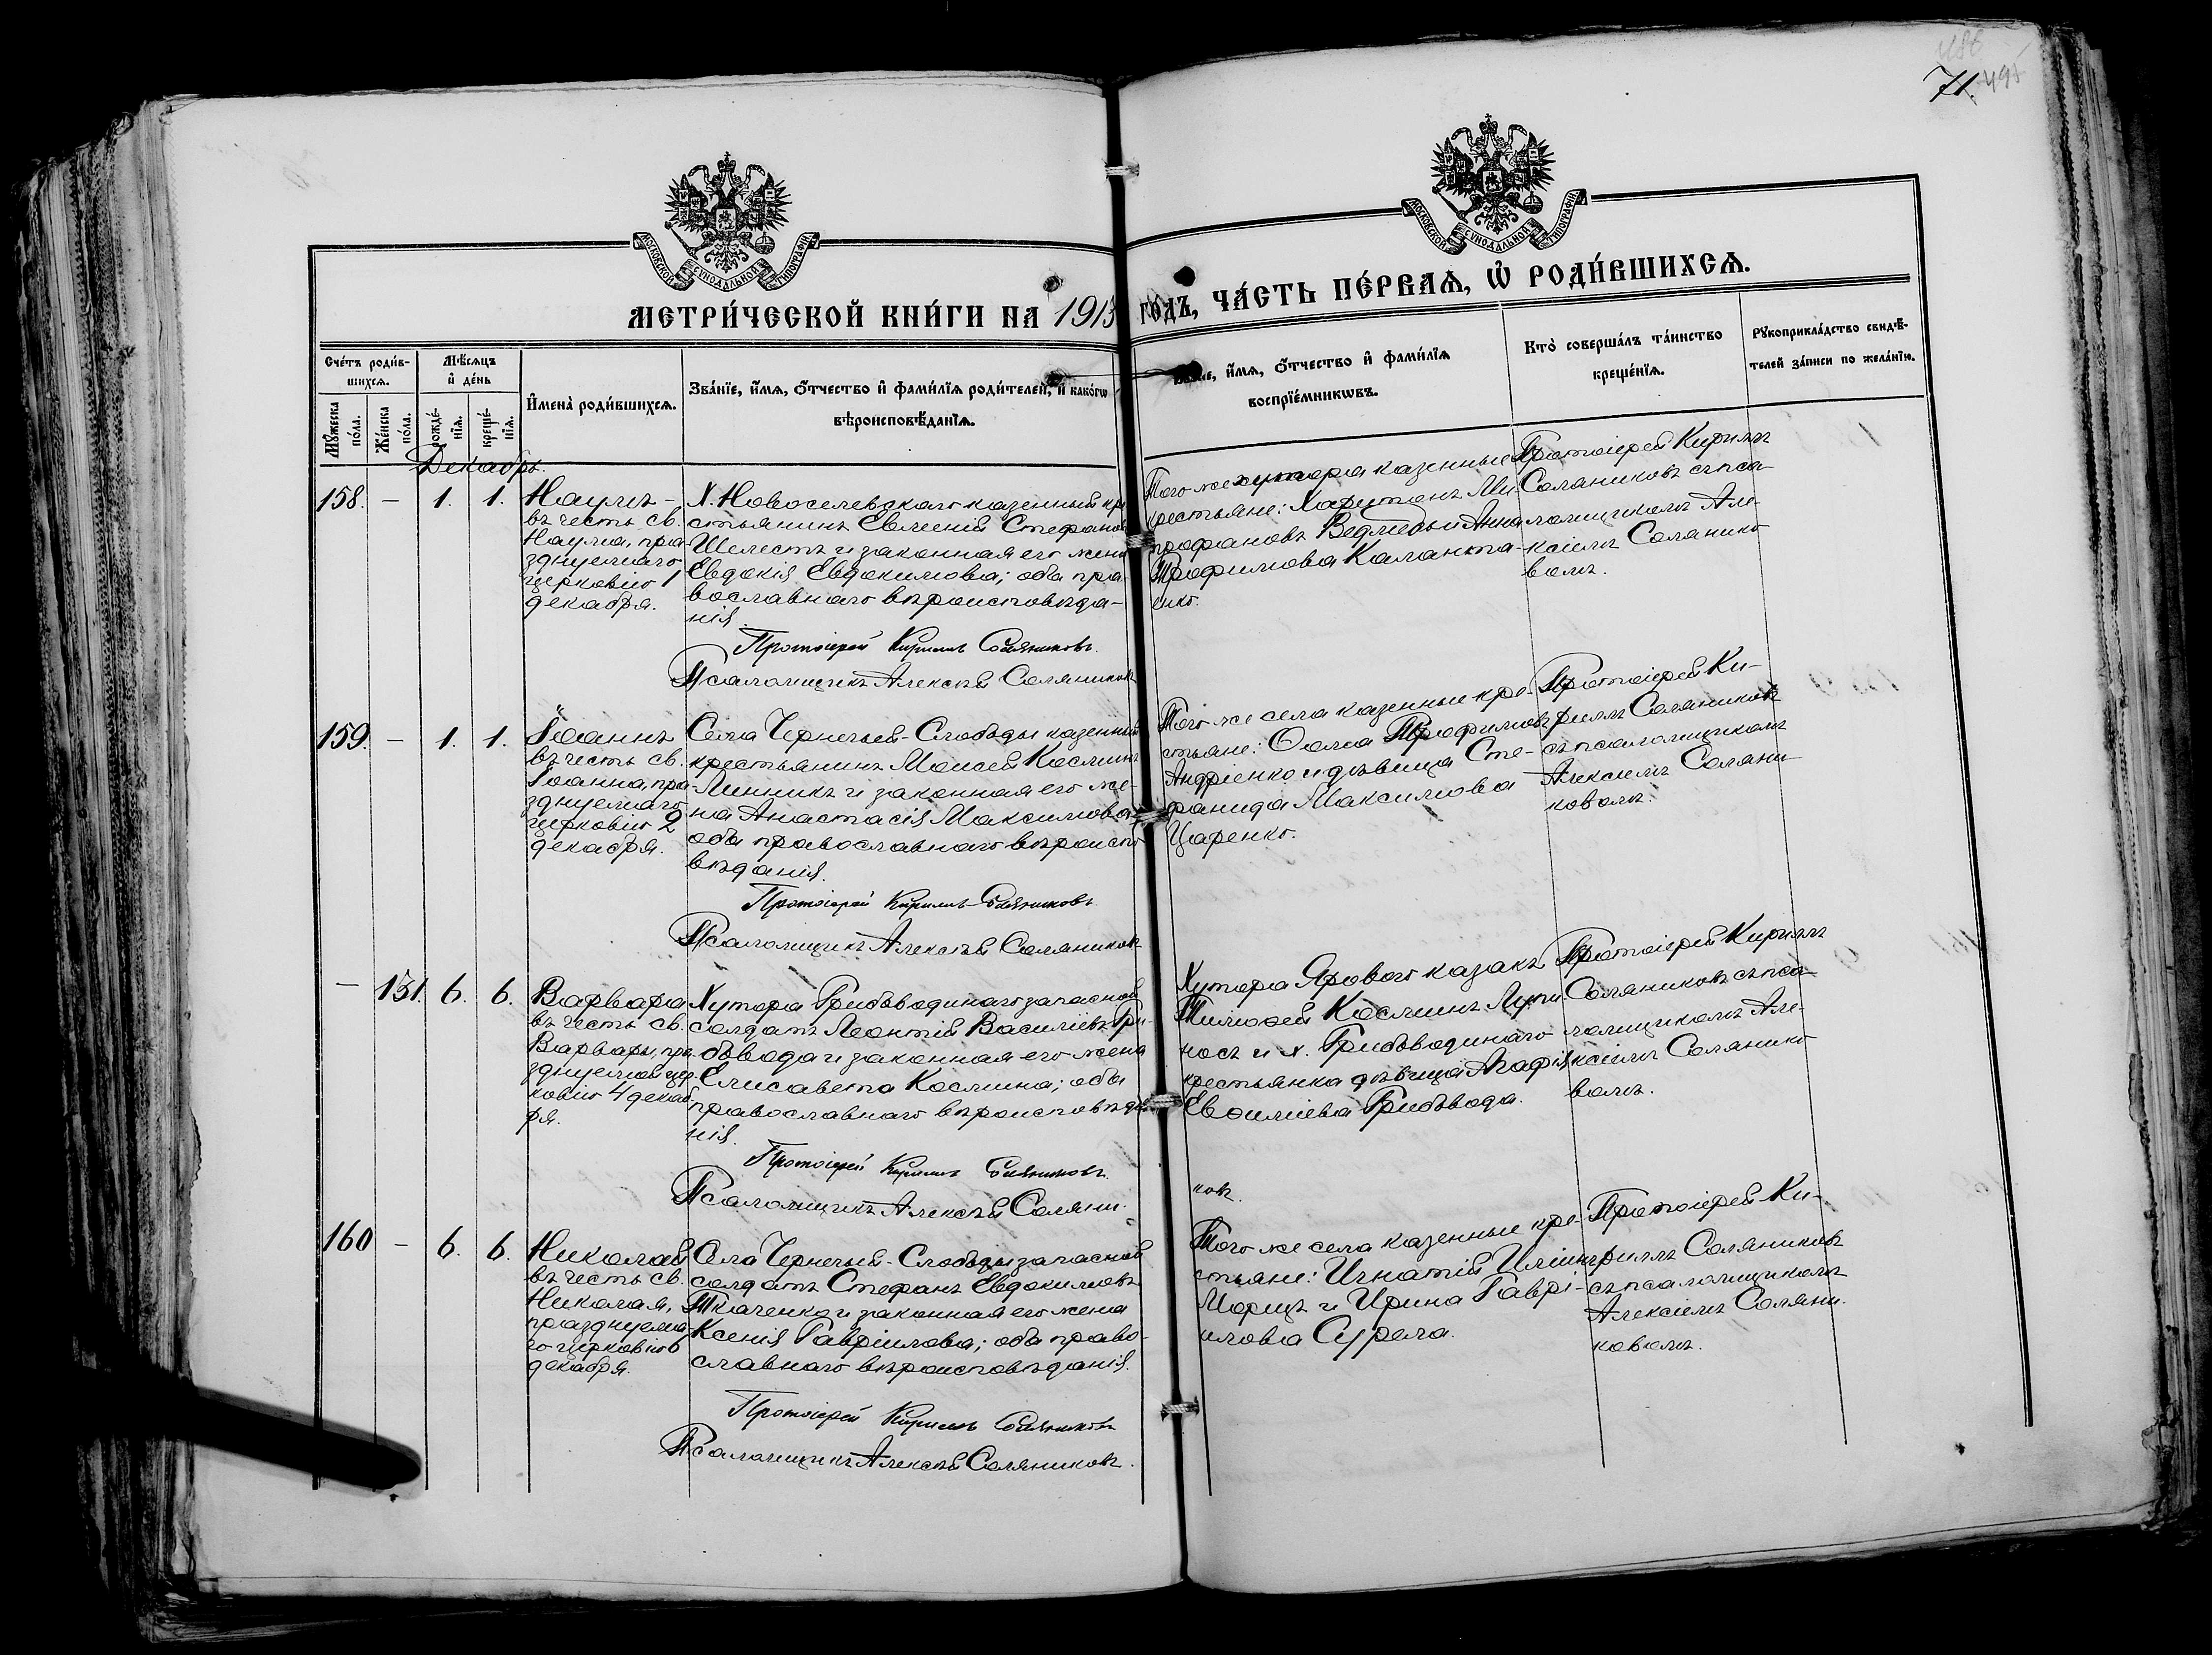 71.
495
МОСКОВСКОЙ СѴНОДАЛЬНОЙ ТИПОГРАФІИ
МОСКОВСКОЙ СѴНОДАЛЬНОЙ ТИПОГРАФІИ
МЕТРИ́ЧЕСКОЙ КНИ́ГИ НА 1913 ГО́ДЪ, ЧА́СТЬ ПЕ́РВАѦ, Ѡ҆ РОДИ́ВШИХСѦ.
Сче́тъ роди́в-
шихсѧ.
Мꙋ́жеска по́ла.
Же́нска по́ла.
Мѣ́сѧцъ
и҆ де́нь
рожде́-
нїѧ.
креще́-
нїѧ.
И҆мена̀ роди́вшихсѧ.
Зва́нїе, и҆́мѧ, ѻ҆́тчество и҆ фами́лїѧ роди́телей, и҆ како́гѡ
вѣроисповѣ́данїѧ.
и҆́мѧ, ѻ҆́тчество и҆ фами́лїѧ
воспрїе́мникѡвъ.
Кто̀ соверша́лъ та́инство
креще́нїѧ.
Рꙋкоприкла́дство свидѣ́-
телей за́писи по жела́нїю.
Декабрь.
158. – 1. 1.
Наумъ –
въ честь св.
Наума, пра-
зднуемаго
церковію 1
декабря.
Х. Новоселевскаго казенный кре
стьянинъ Евгеній Стефановъ
Шелестъ и законная его жена
Евдокія Евдокимова; оба пра-
вославнаго вѣроисповѣда-
нія.
Протоіерей Кириллъ Соляниковъ.
Псаломщикъ Алексѣй Соляниковъ
Того же хутора казенные
крестьяне: Харитонъ Ми-
трофановъ Ведмедь и Анна
Трофимова Каланта-
енко.
Протоіерей Кириллъ
Соляниковъ съ пса-
ломщикомъ Але-
ксіемъ Солянико
вомъ.
159. – 1. 1.
Іоаннъ
въ честь св.
Іоанна, пра-
зднуемаго
церковію 2
декабря.
Села Чернечьей-Слободы казенный
крестьянинъ Моисей Косминъ
Линникъ и законная его же-
на Анастасія Максимова;
оба православнаго вѣроиспо
вѣданія.
Протоіерей Кириллъ Соляниковъ
Псаломщикъ Алексѣй Соляниковъ
Того же села казенные кре-
стьяне: Ѳома Трофимовъ
Андріенко и дѣвица Сте-
фанида Максимова
Царенко.
Протоіерей Ки-
риллъ Соляниковъ
съ псаломщикомъ
Алексіемъ Соляни-
ковомъ.
– 151. 6. 6.
Варвара
въ честь св.
Варвары, пра
зднуемой цер-
ковію 4 декаб
ря.
Хутора Грибоводинаго запасной
солдатъ Леонтій Василіевъ Гри-
бовода и законная его жена
Елисавета Космина; оба
православнаго вѣроисповѣда
нія.
Протоіерей Кириллъ Соляниковъ.
Псаломщикъ Алексѣй Соляни-
ковъ.
Хутора Яроваго казакъ
Тимоѳей Косминъ Лупи
носъ и х. Грибоводинаго
крестьянка дѣвица Агафія
Евѳиміева Грибовода.
Протоіерей Кириллъ
Соляниковъ съ пса-
ломщикомъ Але-
ксіемъ Солянико
вомъ.
160 – 6. 6.
Николай
въ честь св.
Николая,
празднуема-
го церковію 6
декабря.
Села Чернечьей-Слободы запасной
солдатъ Стефанъ Евдокимовъ
Ткаченко и законная его жена
Ксенія Гавріилова; оба право-
славнаго вѣроисповѣданія.
Протоіерей Кириллъ Соляниковъ
Псаломщикъ Алексѣй Соляниковъ.
Того же села казенные кре-
стьяне: Игнатій Иліинъ
Морицъ и Ирина Гаврі-
илова Сурела.
Протоіерей Ки-
риллъ Соляниковъ
съ псаломщикомъ
Алексіемъ Соляни-
ковомъ.